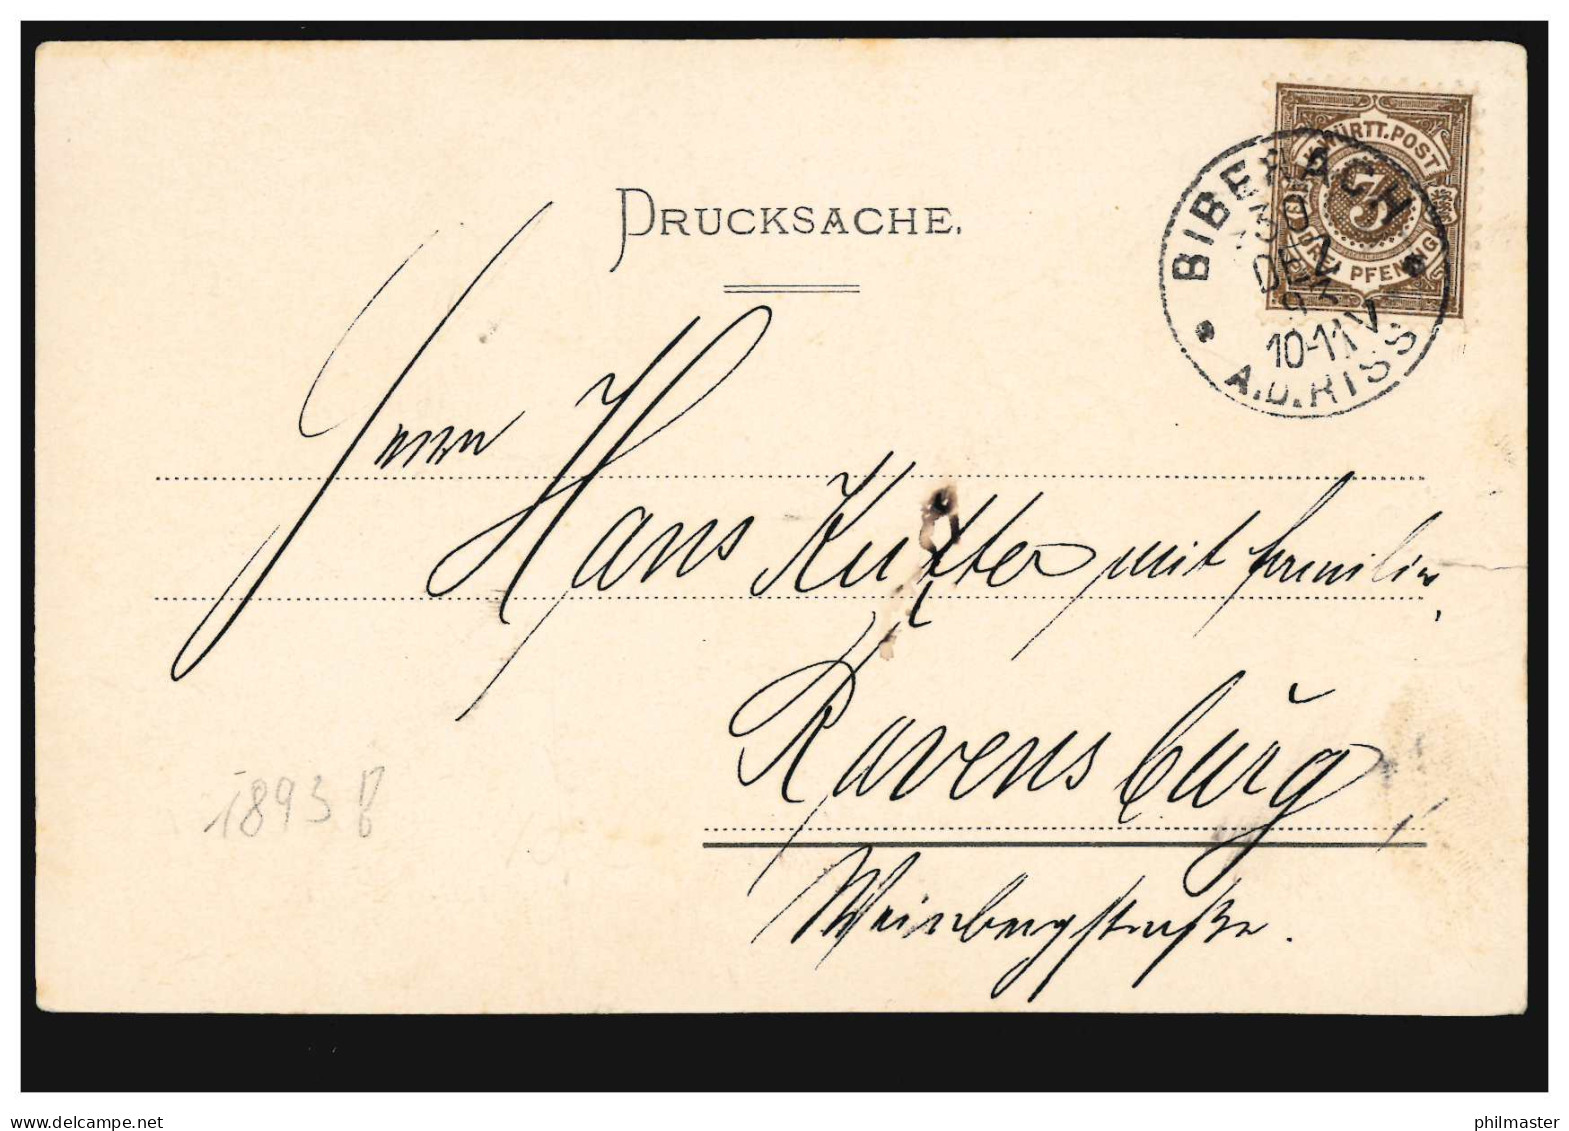 DRUCKSACHE.
K. WÜRTT. POST
3
DREI PFENNIG
BIBERACH
30
DEZ
9
10-11V
A.D.RISS
Herrn
Hans Kutter mit Familie,
Ravensburg
Weinbergstraße.
1893
www.delcampe.net
philmaster